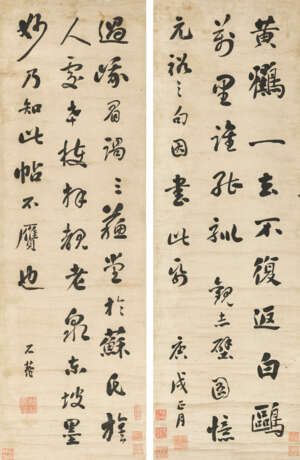 黃鶴一去不復返白鷗
萬里誰能馴 觀赤壁圖憶
元祐之句因書此 庚戌正月
過峨眉謁三蘇堂於蘇氏族
人處本枝拜觀老泉東坡墨
妙乃知此帖不贋也
石菴